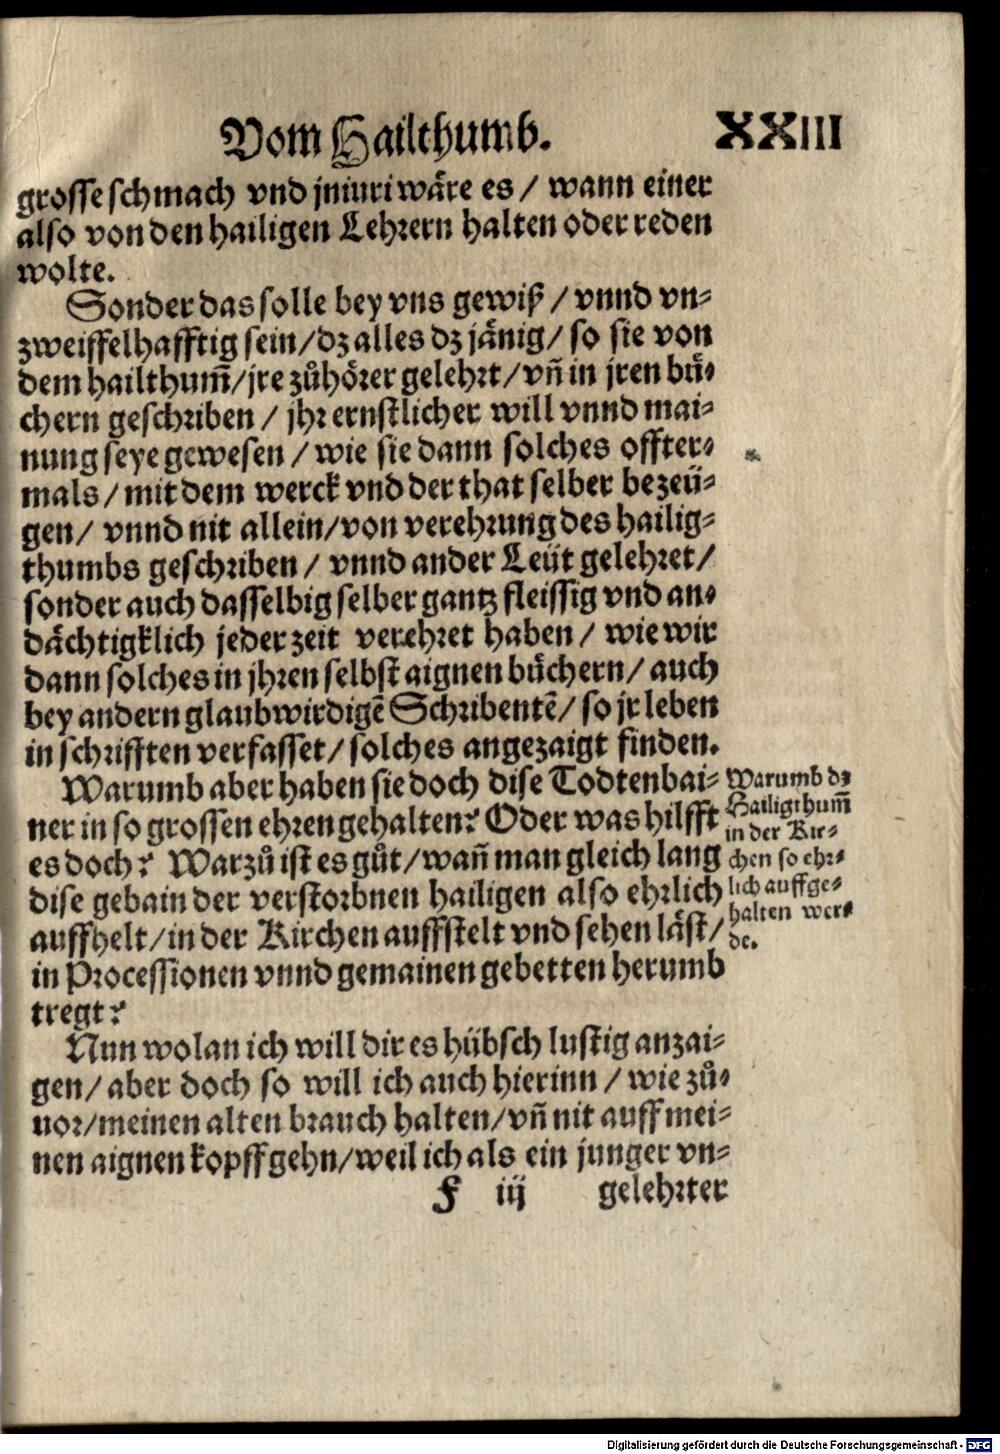 Vom Hailthumb. XXIII
grosse schmach vnd jniuri wäre es / wann einer
also von den hailigen Lehrern halten oder reden
wolte.
Sonder das solle bey vns gewiß / vnnd vn-
zweiffelhafftig sein/dz alles dz jänig/ so sie von
dem hailthum̃/jre zůhörer gelehrt/vñ in jren bü-
chern geschriben / jhr ernstlicher will vnnd mai-
nung seye gewesen / wie sie dann solches offter-
mals / mit dem werck vnd der that selber bezeü-
gen/ vnnd nit allein/von verehrung des hailig-
thumbs geschriben / vnnd ander Leüt gelehret/
sonder auch dasselbig selber gantz fleissig vnd an-
dächtigklich jeder zeit verehret haben / wie wir
dann solches in jhren selbst aignen büchern/ auch
bey andern glaubwirdigẽ Schribentẽ/ so jr leben
in schrifften verfasset/ solches angezaigt finden.
Warumb aber haben sie doch dise Todtenbai-
ner in so grossen ehren gehalten? Oder was hilfft
es doch? Warzů ist es gůt/wañ man gleich lang
dise gebain der verstorbnen hailigen also ehrlich
auffhelt/in der Kirchen auffstelt vnd sehen läst/
in Processionen vnnd gemainen gebetten herumb
tregt?
Warumb dz
Hailigthum̃
in der Kir-
chen so ehr-
lich auffge-
halten wer-
de.
Nun wolan ich will dir es hübsch lustig anzai-
gen/ aber doch so will ich auch hierinn / wie zů-
uor/meinen alten brauch halten/vñ nit auff mei-
nen aignen kopff gehn/weil ich als ein junger vn-
F iij gelehrter
Digitalisierung gefördert durch die Deutsche Forschungsgemeinschaft - DFG